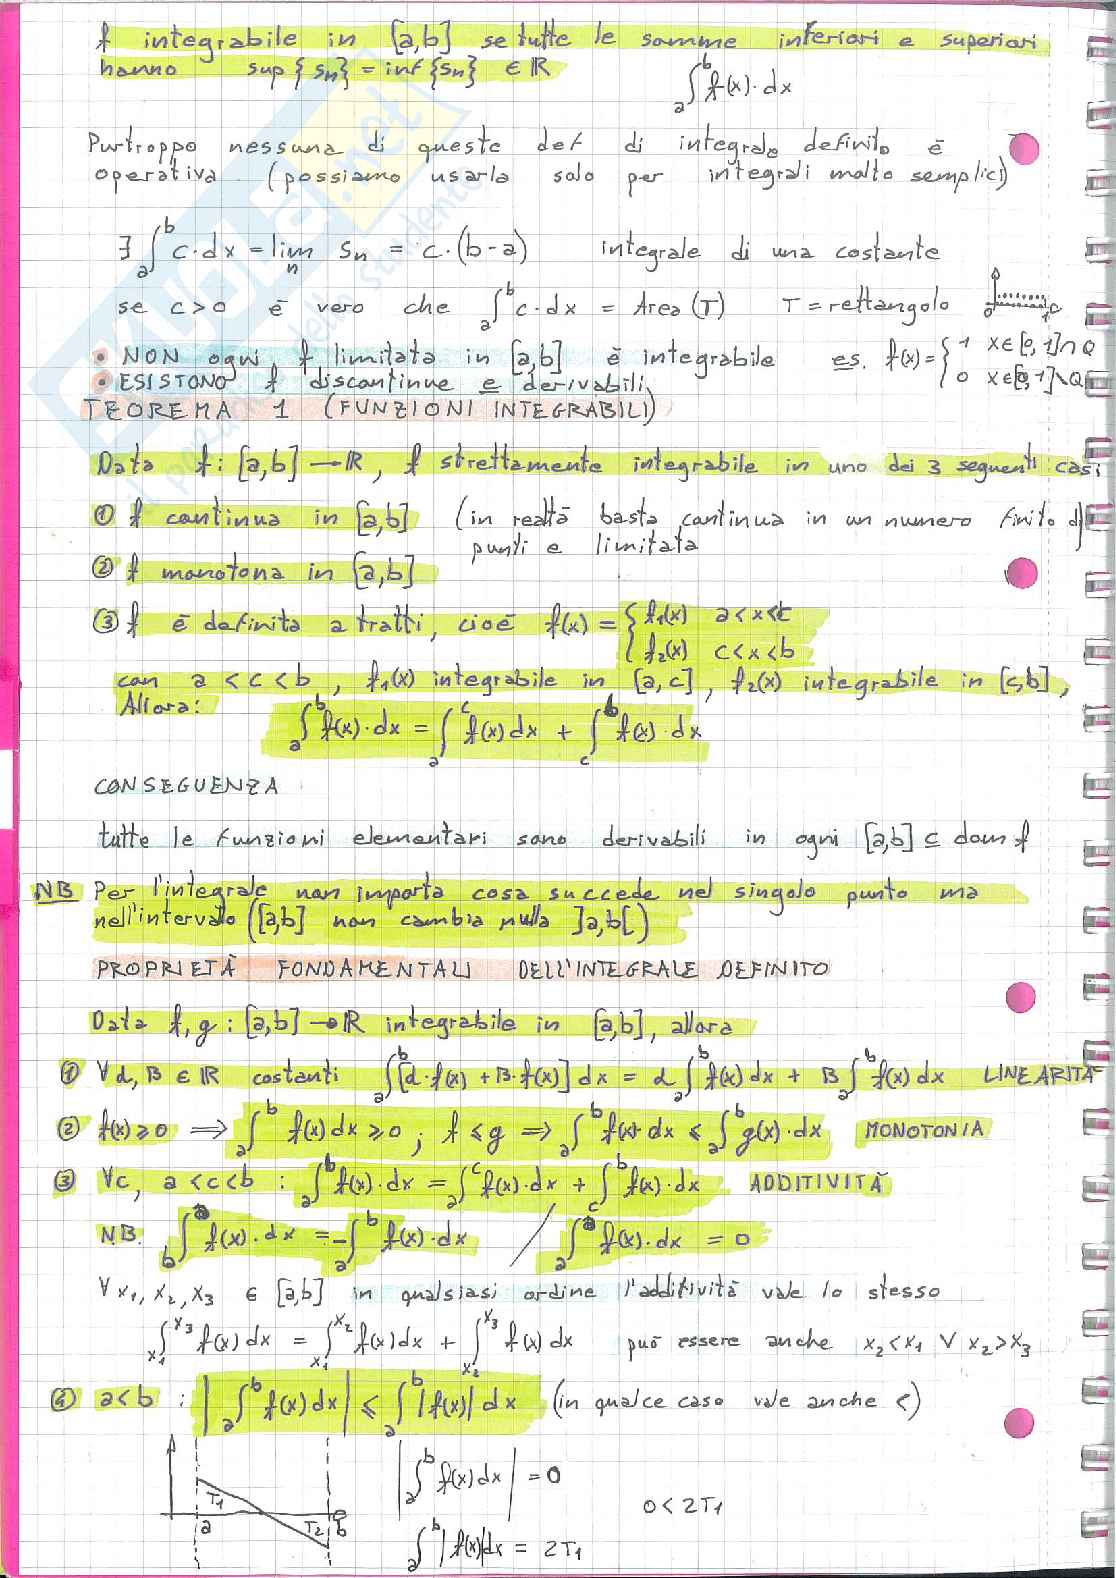 f integrabile in [a,b] se tutte le somme inferiori e superiori
hanno sup{sn} = inf{Sn} ∈ ℝ
∫_a^b f(x)·dx
Purtroppo nessuna di queste def di integrale definito è
operativa (possiamo usarla solo per integrali molto semplici)
∃ ∫_a^b c·dx = lim_n sn = c·(b-a) integrale di una costante
se c>0 è vero che ∫_a^b c·dx = Area(T) T = rettangolo
• NON ogni f limitata in [a,b] è integrabile es. f(x) = { 1 x∈[0,1]∩Q
• ESISTONO f discontinue e derivabili 0 x∈[0,1]\Q
TEOREMA 1 (FUNZIONI INTEGRABILI)
Data f: [a,b] → ℝ, f strettamente integrabile in uno dei 3 seguenti casi
① f continua in [a,b] (in realtà basta continua in un numero finito di
punti e limitata
② f monotona in [a,b]
③ f è definita a tratti, cioè f(x) = { f1(x) a<x<c
f2(x) c<x<b
con a<c<b, f1(x) integrabile in [a,c], f2(x) integrabile in [c,b],
Allora:
∫_a^b f(x)·dx = ∫_a^c f(x)dx + ∫_c^b f(x)·dx
CONSEGUENZA
tutte le funzioni elementari sono derivabili in ogni [a,b] ⊆ dom f
NB Per l'integrale non importa cosa succede nel singolo punto ma
nell'intervallo ([a,b] non cambia nulla ]a,b[)
PROPRIETÀ FONDAMENTALI DELL'INTEGRALE DEFINITO
Data f,g: [a,b] → ℝ integrabile in [a,b], allora
① ∀α,B ∈ ℝ costanti ∫_a^b [α·f(x) + B·f(x)]dx = α∫_a^b f(x)dx + B∫_a^b f(x)dx LINEARITÀ
② f(x)≥0 ⟹ ∫_a^b f(x)dx ≥0; f≤g ⟹ ∫_a^b f(x)·dx ≤ ∫_a^b g(x)·dx MONOTONIA
③ ∀c, a<c<b: ∫_a^b f(x)·dx = ∫_a^c f(x)·dx + ∫_c^b f(x)·dx ADDITIVITÀ
N.B. ∫_b^a f(x)·dx = -∫_a^b f(x)·dx / ∫_a^a f(x)·dx = 0
∀x1,x2,x3 ∈ [a,b] in qualsiasi ordine l'additività vale lo stesso
∫_x1^x3 f(x)dx = ∫_x1^x2 f(x)dx + ∫_x2^x3 f(x)dx può essere anche x2<x1 ∨ x2>x3
④ a<b: |∫_a^b f(x)dx| ≤ ∫_a^b |f(x)|dx (in qualce caso vale anche <)
T1 a T2 b
|∫_a^b f(x)dx| = 0
0<2T1
∫_a^b |f(x)|dx = 2T1